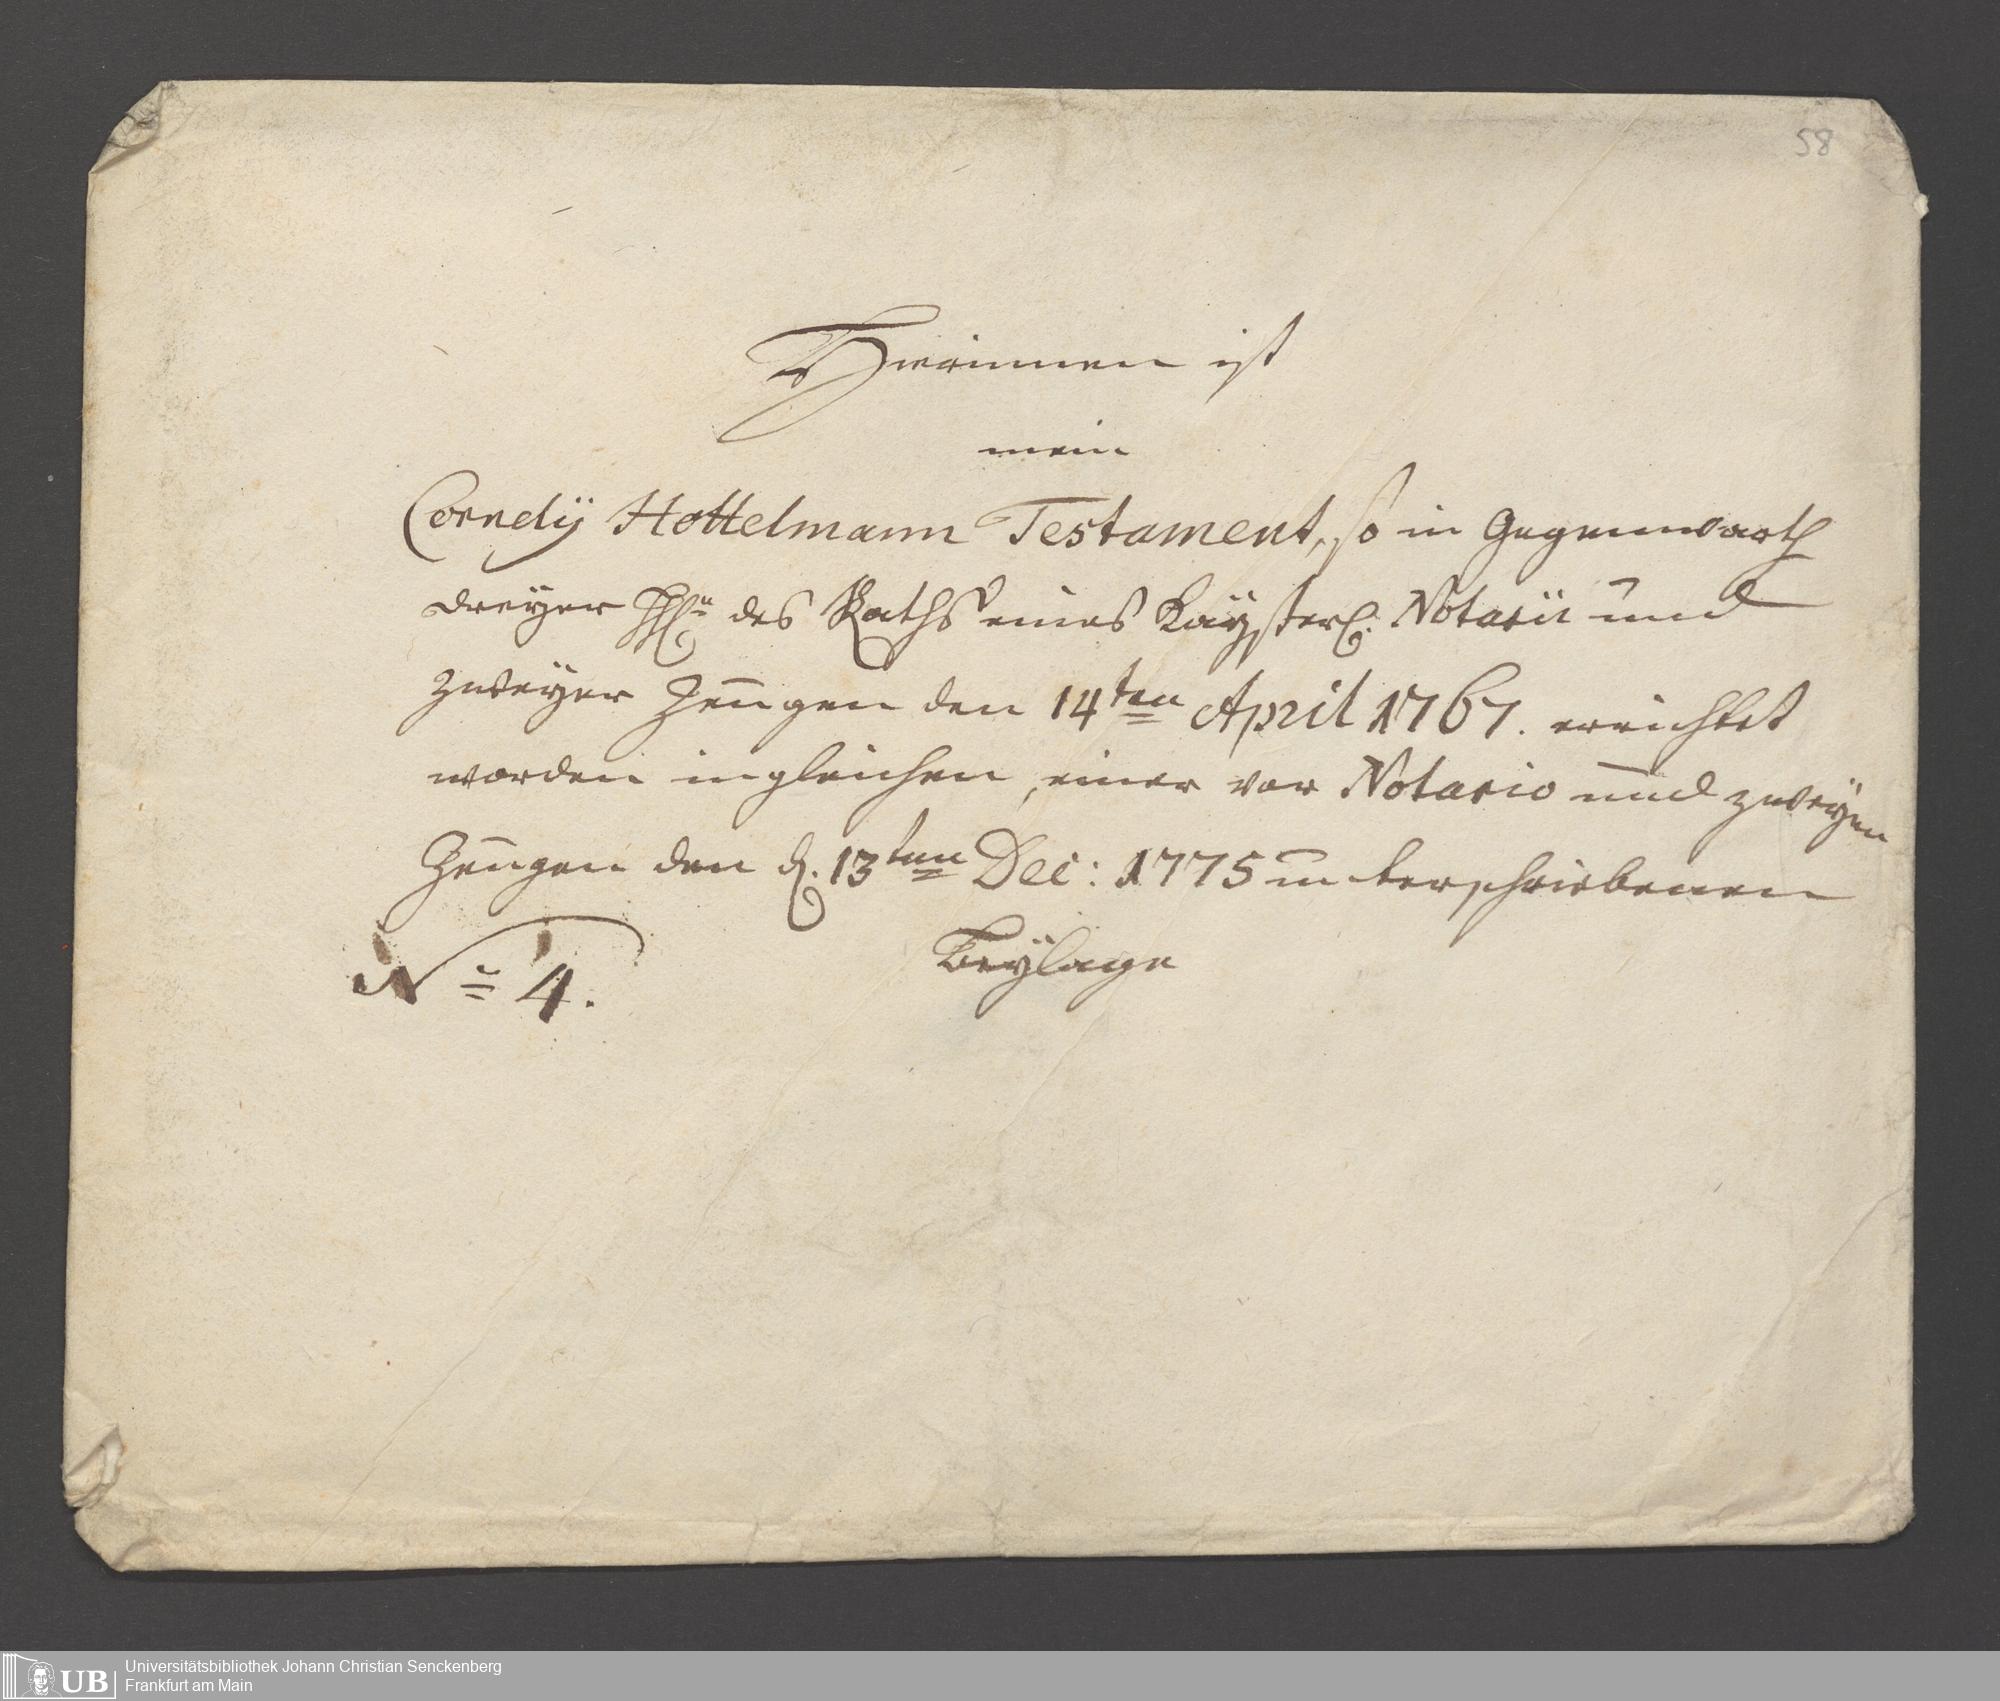 58
Hierinnen ist
mein
Cornelÿ Hottelmann Testament, so in Gegenwarth
dreÿer des Raths eines Kaÿserl. Notarii und
zweÿer Zeugen den 14ten April 1767. errichtet
worden ingleichen, einer vor Notario und zweÿen
Zeugen den d. 13ten Dec: 1775 unterschriebenen
Beÿlage
N= 4.
UB
Universitätsbibliothek Johann Christian Senckenberg
Frankfurt am Main